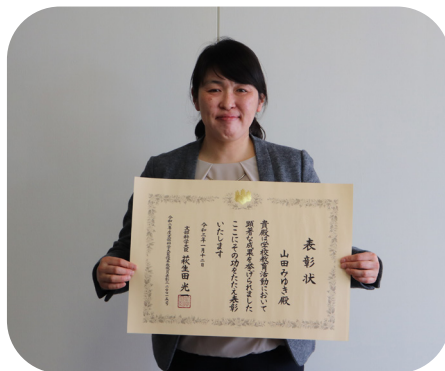 表彰状
山田みゆき殿
貴殿は学校教育活動において
顕著な成果を挙げられました
ここにその功をたたえ表彰
いたします
令和三年一月十二日
文部科学大臣 萩生田光一